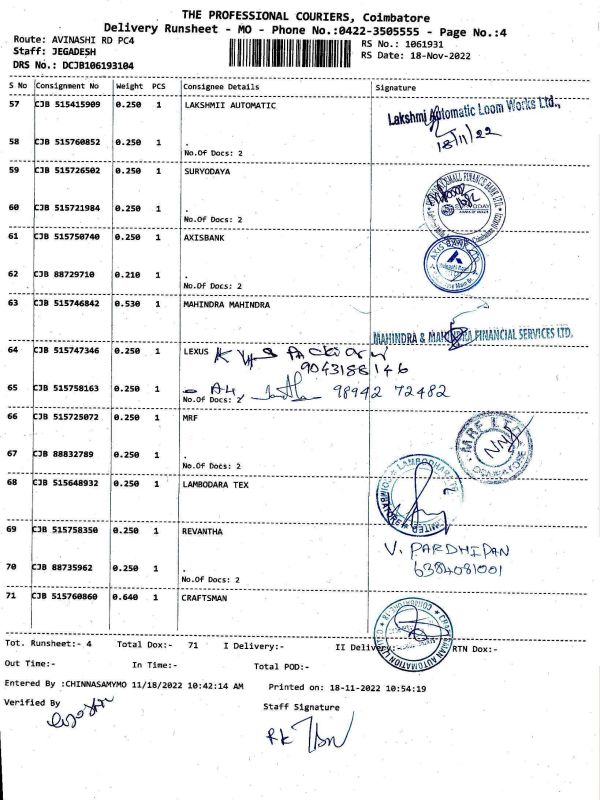 THE PROFESSIONAL COURIERS, Coimbatore
Delivery Runsheet - MO - Phone No.:0422-3505555 - Page No.:4
Route: AVINASHI RD PC4 RS No.: 1061931
Staff: JEGADESH RS Date: 18-Nov-2022
DRS No.: DCJB106193104
S No Consignment No Weight PCS Consignee Details Signature
57 CJB 515415909 0.250 1 LAKSHMII AUTOMATIC Lakshmi Automatic Loom Works Ltd.,
18/11/22
58 CJB 515760852 0.250 1 .
No.Of Docs: 2
59 CJB 515726502 0.250 1 SURYODAYA
60 CJB 515721984 0.250 1 .
No.Of Docs: 2
61 CJB 515750740 0.250 1 AXISBANK AXIS BANK LTD
62 CJB 88729710 0.210 1 .
No.Of Docs: 2
63 CJB 515746842 0.530 1 MAHINDRA MAHINDRA
MAHINDRA & MAHINDRA FINANCIAL SERVICES LTD.
64 CJB 515747346 0.250 1 LEXUS
9043188146
65 CJB 515758163 0.250 1 98942 72482
No.Of Docs: 2
66 CJB 515725072 0.250 1 MRF MRF LTD COIMBATORE
67 CJB 88832789 0.250 1 .
No.Of Docs: 2
68 CJB 515648932 0.250 1 LAMBODARA TEX
69 CJB 515758350 0.250 1 REVANTHA V. PARDHIPAN
6384081001
70 CJB 88735962 0.250 1 .
No.Of Docs: 2
71 CJB 515760860 0.640 1 CRAFTSMAN CRAFTSMAN AUTOMATION LIMITED
Tot. Runsheet:- 4 Total Dox:- 71 I Delivery:- II Delivery:- RTN Dox:-
Out Time:- In Time:- Total POD:-
Entered By :CHINNASAMYMO 11/18/2022 10:42:14 AM Printed on: 18-11-2022 10:54:19
Verified By Staff Signature